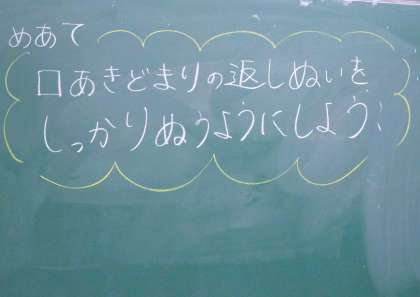 めあて
口あきどまりの返しぬいを
しっかりぬうようにしよう